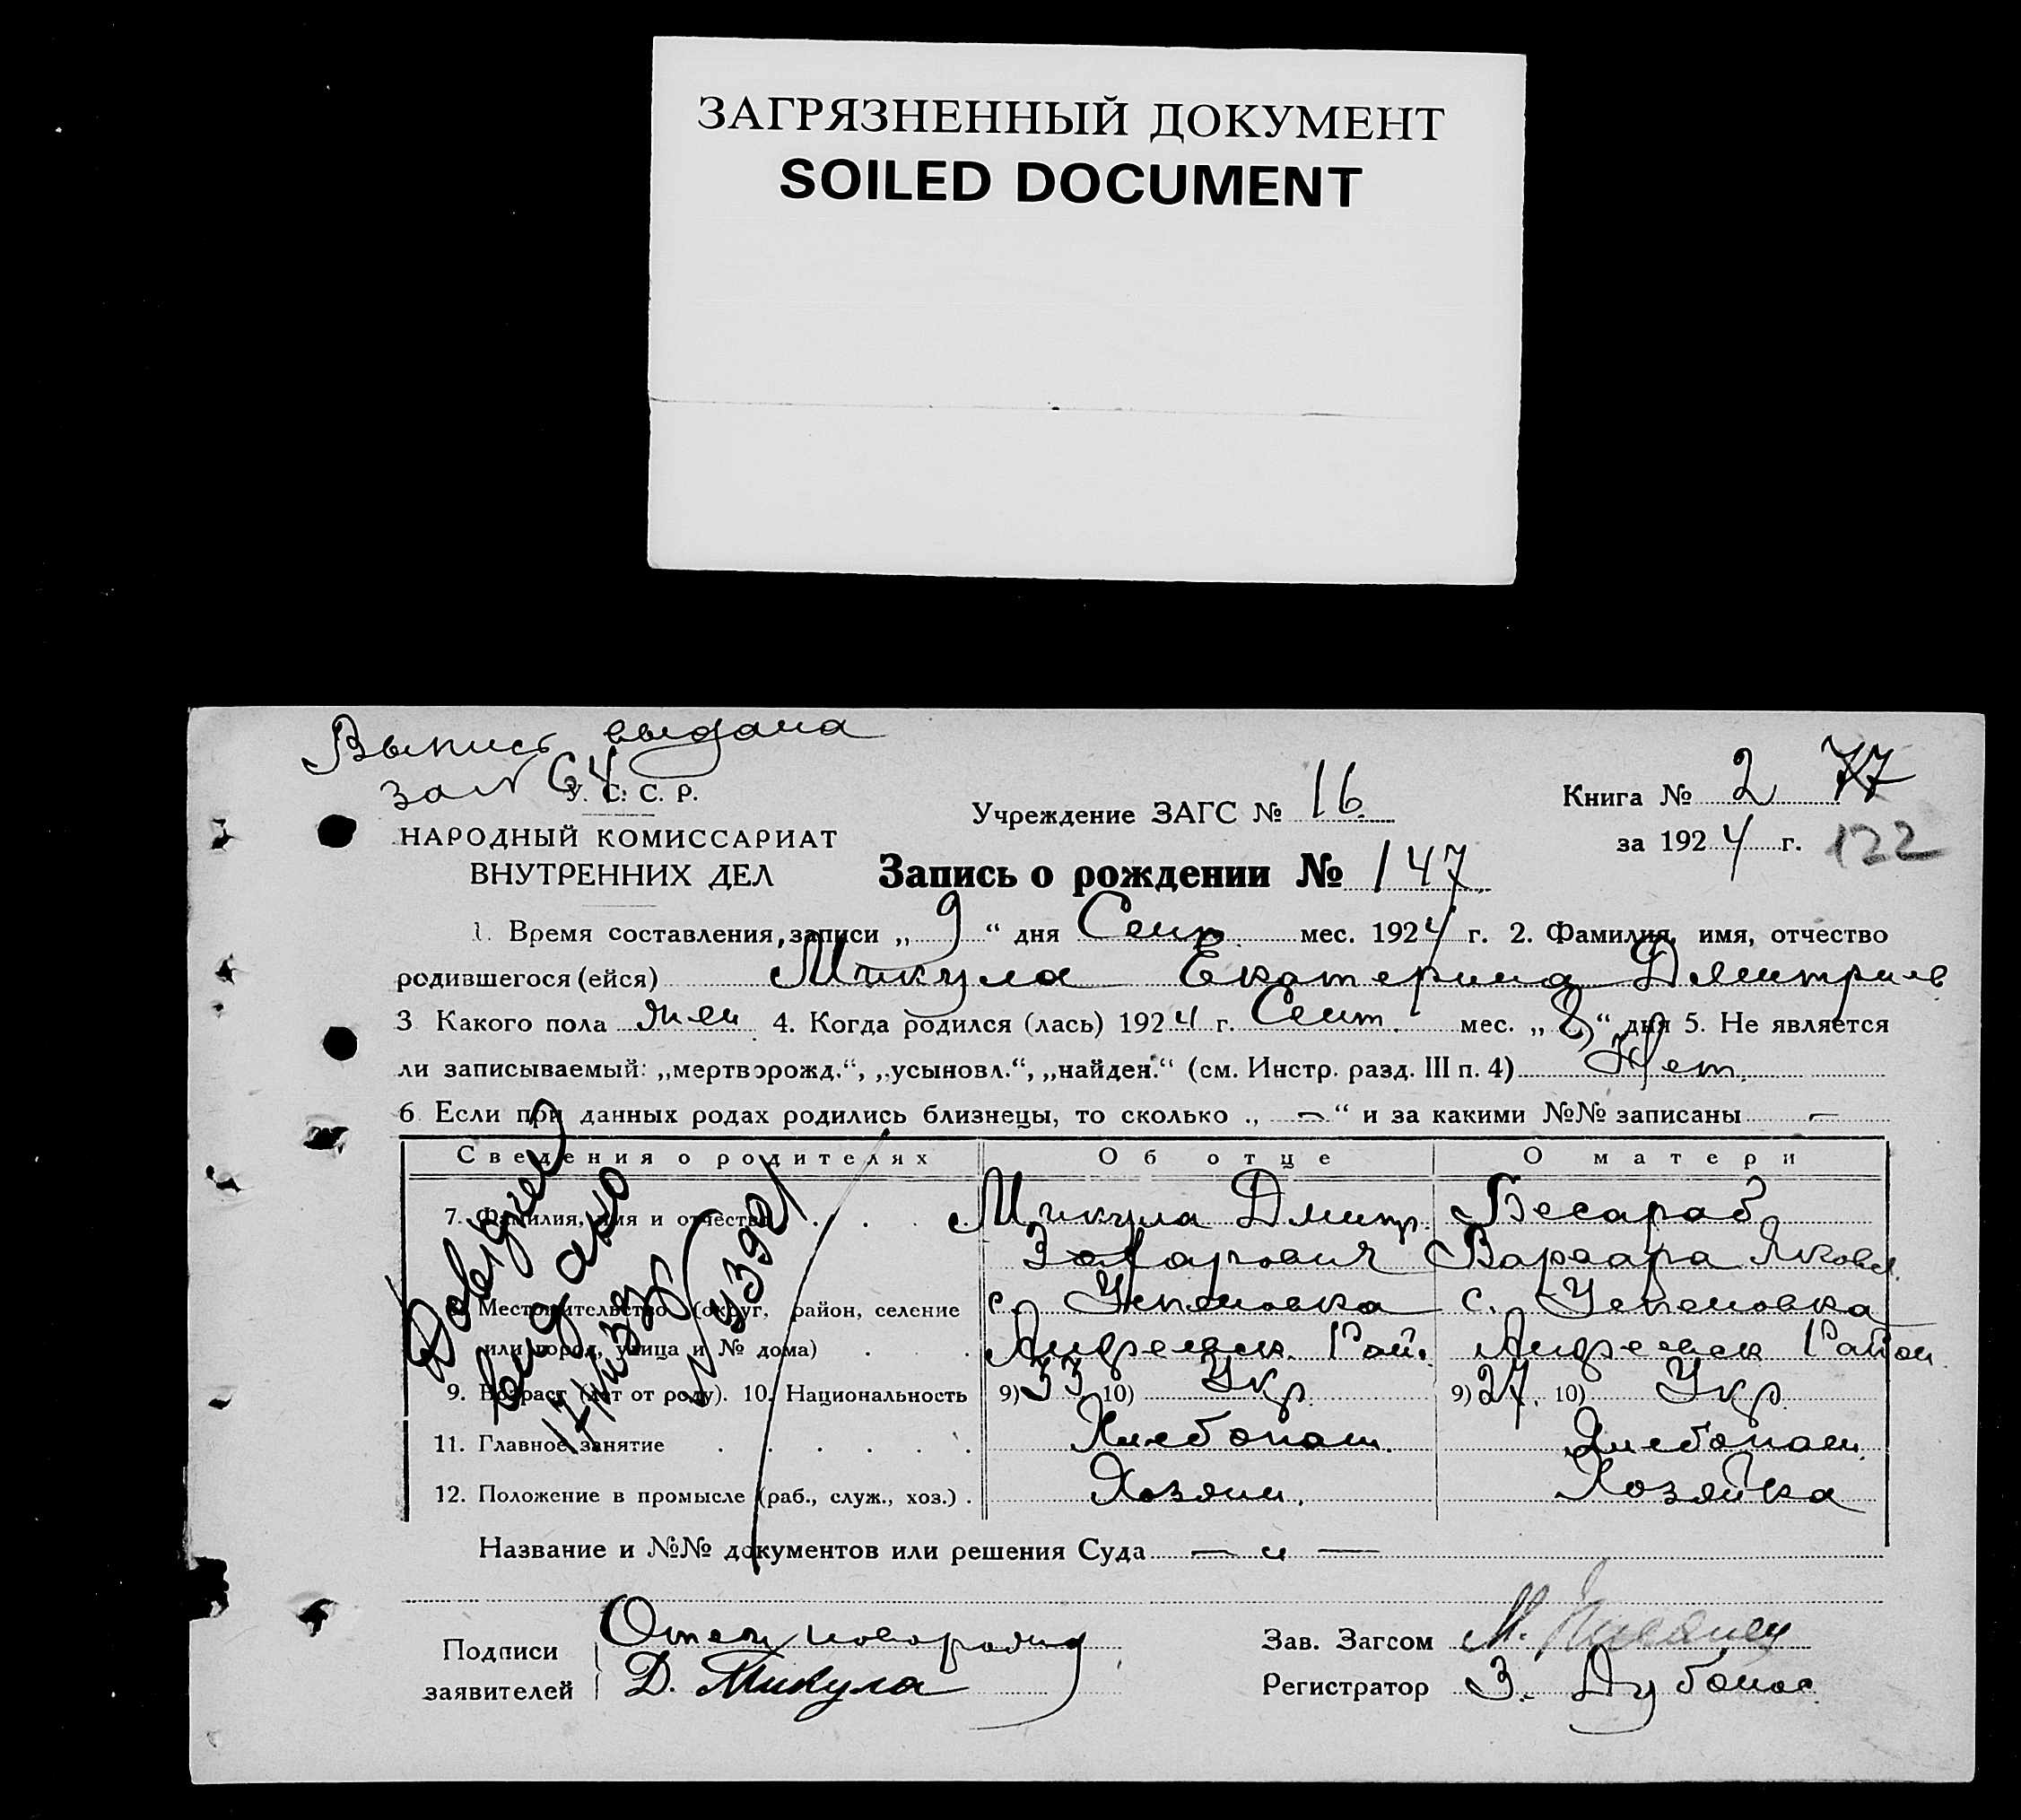 ЗАГРЯЗНЕННЫЙ ДОКУМЕНТ
SOILED DOCUMENT
Выпись выдана
за № 64
У. С. С. Р.
НАРОДНЫЙ КОМИССАРИАТ
ВНУТРЕННИХ ДЕЛ
Учреждение ЗАГС № 16.
Книга № 2 77
за 1924 г. 122
Запись о рождении № 147
1. Время составления записи „9“ дня Сент. мес. 1924 г. 2. Фамилия, имя, отчество
родившегося (ейся) Микула Екатерина Дмитриев
3 Какого пола жен 4. Когда родился (лась) 1924 г. Сент. мес. „8“ дня 5. Не является
ли записываемый: „мертворожд.“, „усыновл.“, „найден.“ (см. Инстр. разд. III п. 4) Нет.
6. Если при данных родах родились близнецы, то сколько „—“ и за какими №№ записаны —
Сведения о родителях Об отце О матери
7. Фамилия, имя и отчество Микула Дмитр. Бесараб
Захарович Варвара Яковл.
Местожительство (округ, район, селение с. с.
или город, улица и № дома) Андреевск. Рай. Андреевск Район
9. Возраст (лет от роду). 10. Национальность 9) 33 10) Укр. 9) 27. 10) Укр.
11. Главное занятие Хлебопаш. Хлебопаш.
12. Положение в промысле (раб., служ., хоз.) . Хозяин. Хозяйка
Довідку
видано
Название и №№ документов или решения Суда — „ —
Подписи Отец новорожд
заявителей Д. Микула
Зав. Загсом М.
Регистратор З.